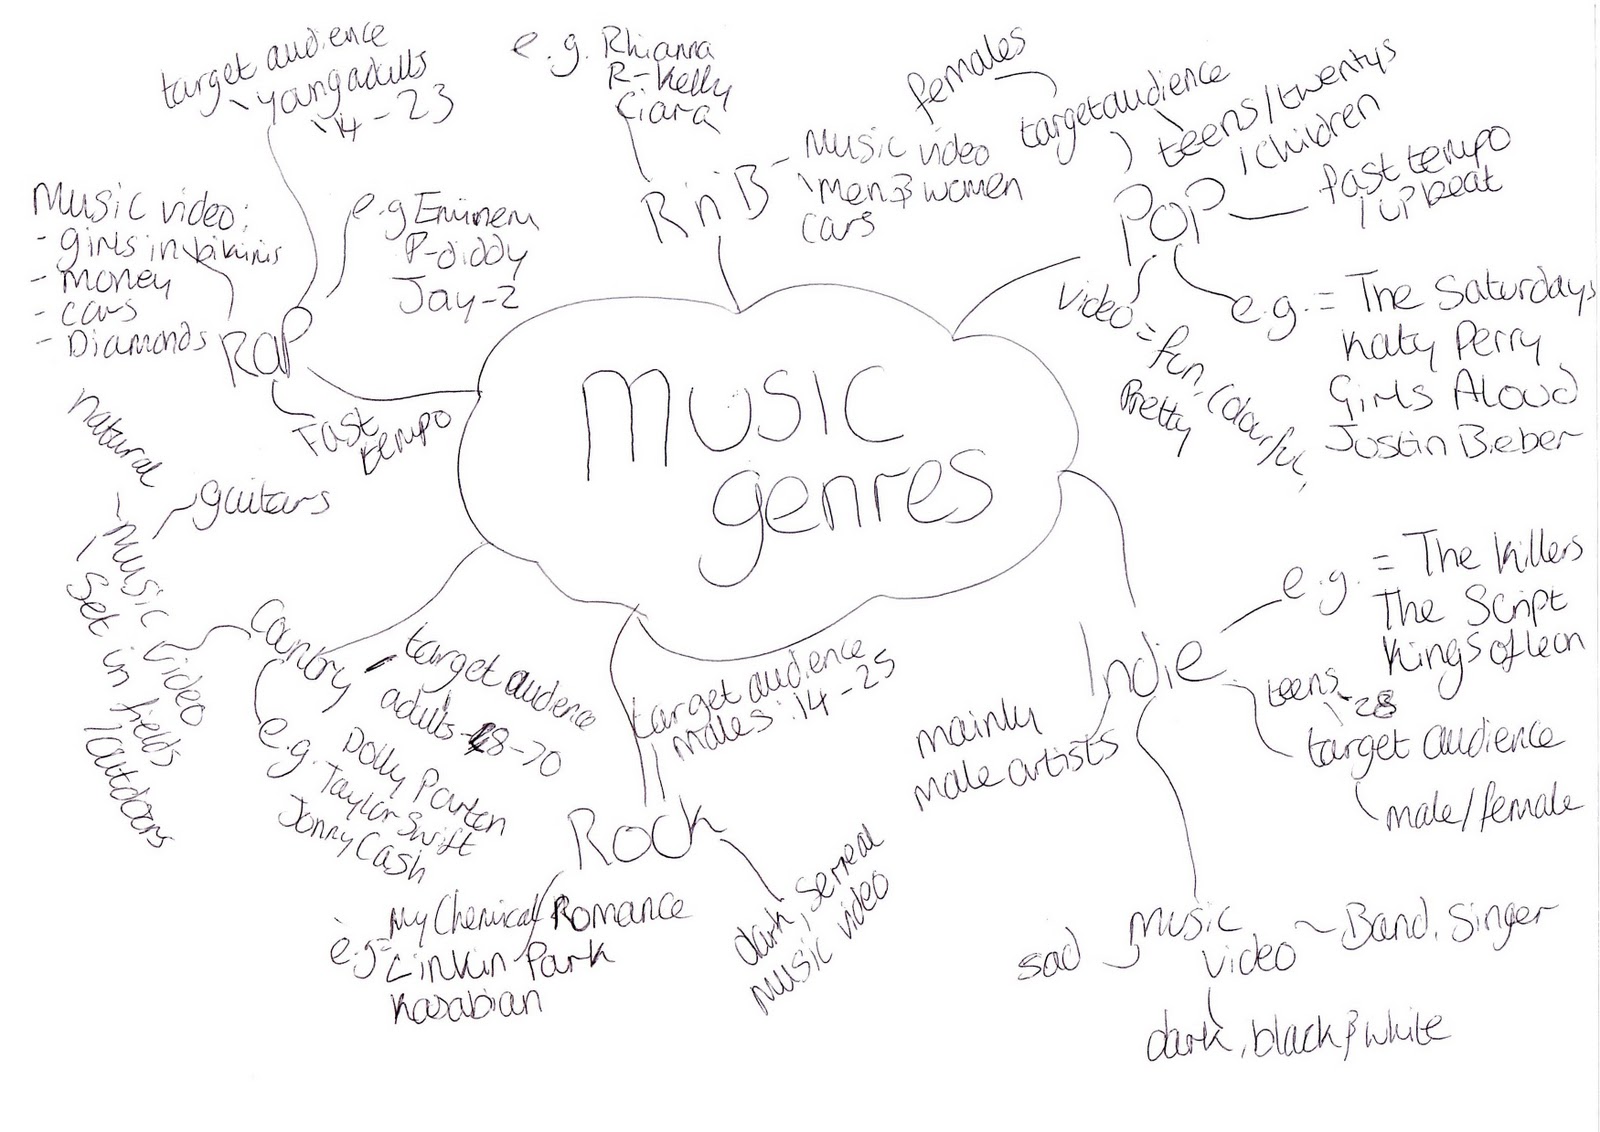 Music
genres
RAP
target audience
young adults
14 - 23
e.g Eminem
P-diddy
Jay-Z
Music video:
- girls in bikinis
- money
- cars
- Diamonds
Fast
tempo
R'n'B
e.g. Rhianna
R-Kelly
Ciara
Music video
men & women
cars
POP
target audience
females
teens/twentys
/children
fast tempo
/upbeat
e.g. = The Saturdays
Katy Perry
Girls Aloud
Justin Bieber
video = fun, colourful,
Pretty
Indie
e.g. = The Killers
The Script
Kings of Leon
teens - 28
target audience
male/female
mainly
male artists
Music
video
Band, Singer
sad
dark, black & white
Rock
target audience
males: 14 - 25
dark, serreal
music video
e.g= My Chemical Romance
Linkin Park
Kasabian
Country
target audience
adults - 48-70
e.g. Dolly Parton
Taylor Swift
Jonny Cash
music video
natural
guitars
Set in fields
/outdoors